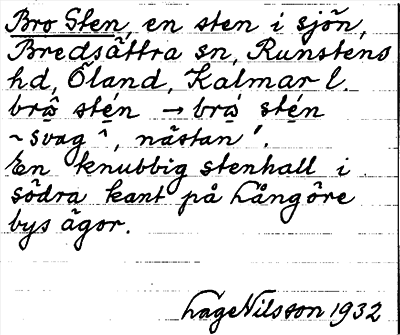 Bro Sten, en sten i sjön,
Bredsättra sn, Runstens
hd, Öland, Kalmar l.
brâ̤ stén → brá̤ stén
~ svag ^, nästan ´.
En knubbig stenhall i
södra kant på Långöre
bys ägor.
Lage Nilsson 1932